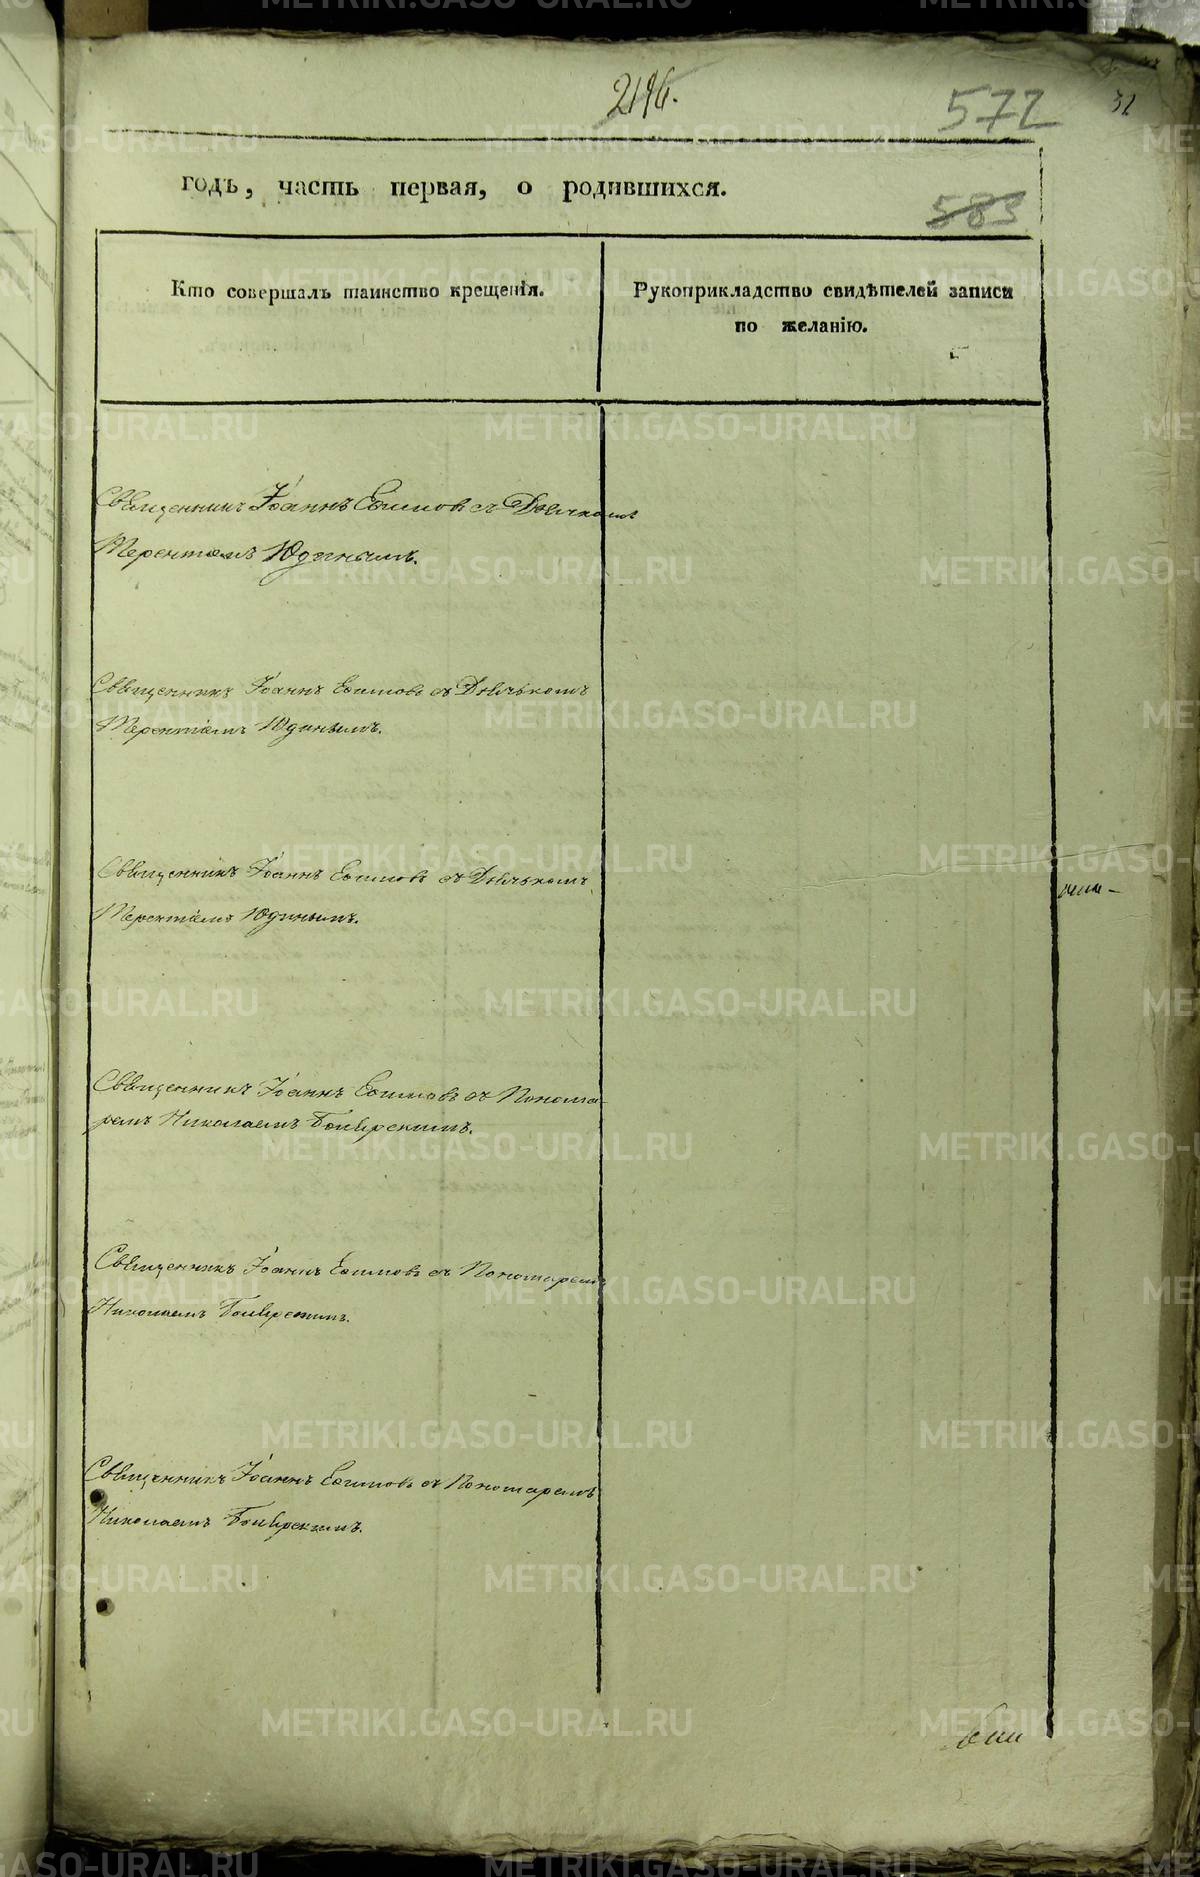 2196.
572
32
годъ, часть первая, о родившихся.
583
Кто совершалъ таинство крещенія.
Рукоприкладство свидѣтелей записи
по желанію.
Священникъ Іоаннъ Евимовъ съ Дьячкомъ
Терентіемъ Юдинымъ.
Священникъ Іоаннъ Евимовъ съ Дьячькомъ
Терентіемъ Юдинымъ.
Священникъ Іоаннъ Евимовъ съ Дьячькомъ
Терентіемъ Юдинымъ.
Священникъ Іоаннъ Евимовъ съ Понома-
ремъ Николаемъ Боярскимъ.
Священникъ Іоаннъ Евимовъ съ Пономаремъ
Николаемъ Боярскимъ.
Священникъ Іоаннъ Евимовъ съ Пономаремъ
Николаемъ Боярскимъ.
METRIKI.GASO-URAL.RU